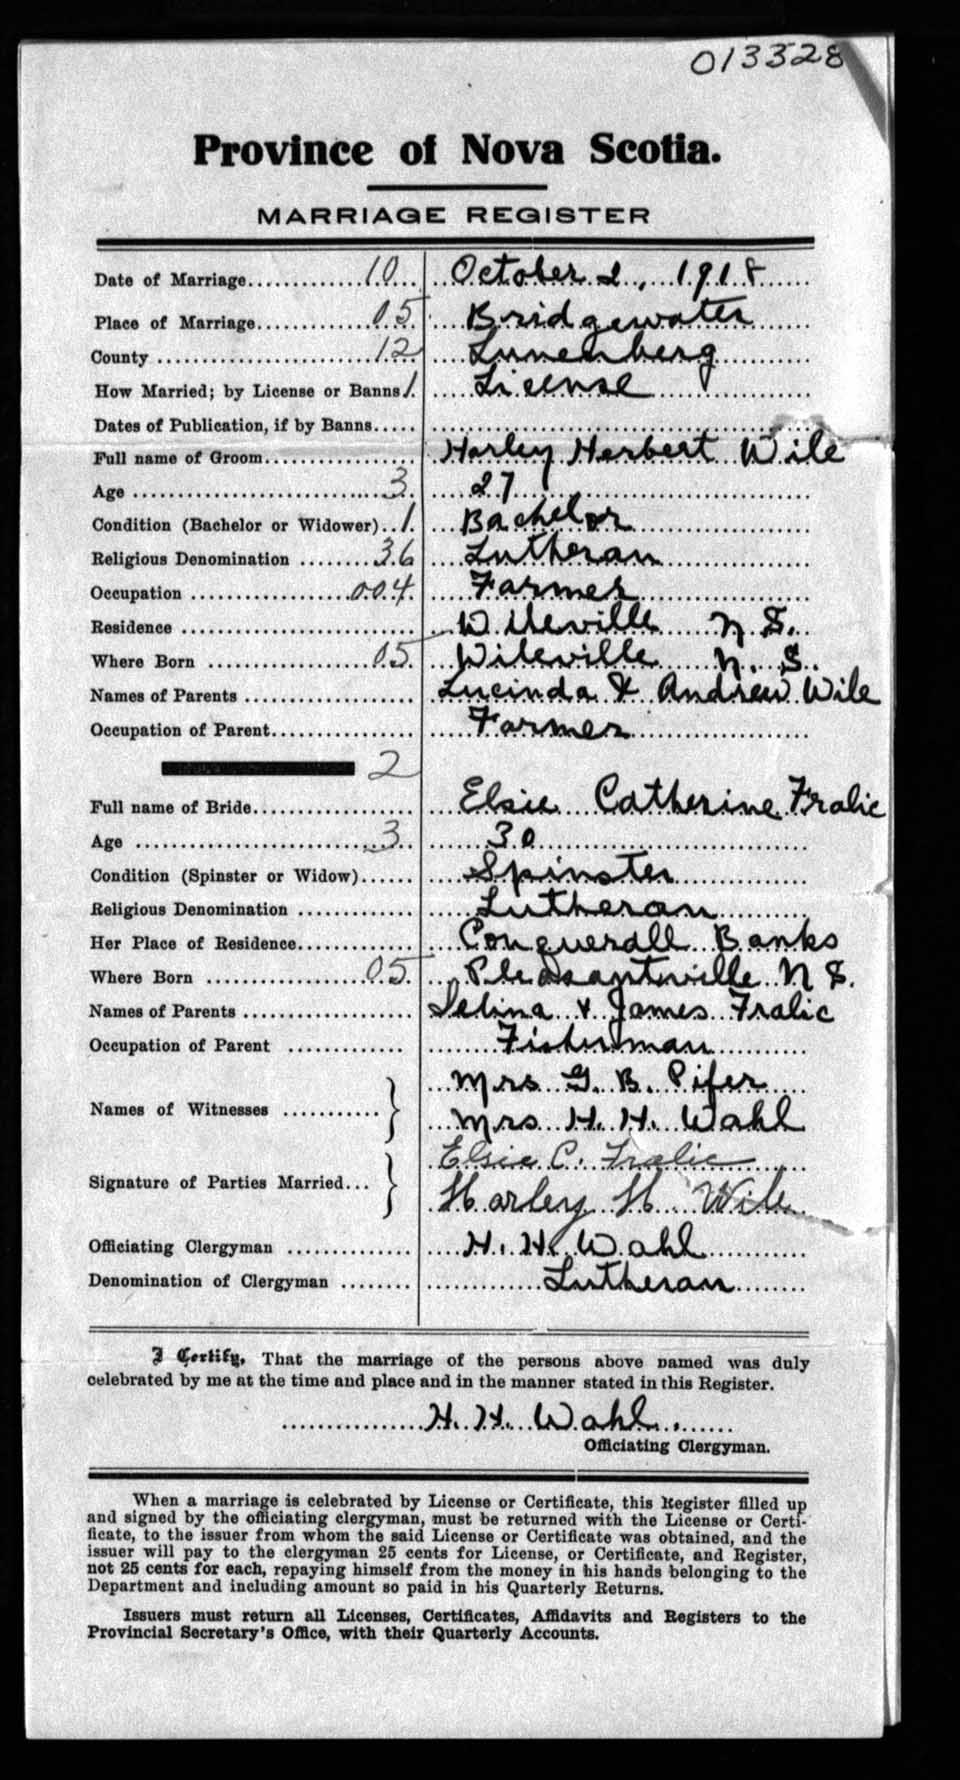 013328
Province of Nova Scotia.
MARRIAGE REGISTER
Date of Marriage.............10... October 2, 1918
Place of Marriage............05 Bridgewater
County ......................12 Lunenberg
How Married; by License or Banns 1. License
Dates of Publication, if by Banns.....
Full name of Groom................. Harley Herbert Wile
Age ..........................3. 27
Condition (Bachelor or Widower)..1. Bachelor
Religious Denomination ........36 Lutheran
Occupation ..................004 Farmer
Residence ........................... Wileville N.S.
Where Born ..................05 Wileville N.S.
Names of Parents .................... Lucinda & Andrew Wile
Occupation of Parent................. Farmer
2
Full name of Bride.................. Elsie Catherine Fralic
Age ..........................3. 30
Condition (Spinster or Widow)...... Spinster
Religious Denomination ............. Lutheran
Her Place of Residence............. Conquerall Banks
Where Born ..................05 Pleasantville N.S.
Names of Parents .................... Selina & James Fralic
Occupation of Parent ............... Fisherman
Mrs G. B. Pifer
Names of Witnesses ...........}
Mrs H. H. Wahl
Elsie C. Fralic
Signature of Parties Married... }
Harley H. Wile
Officiating Clergyman ............... H. H. Wahl
Denomination of Clergyman ........ Lutheran
I Certify, That the marriage of the persons above named was duly
celebrated by me at the time and place and in the manner stated in this Register.
H. H. Wahl.
Officiating Clergyman.
When a marriage is celebrated by License or Certificate, this Register filled up
and signed by the officiating clergyman, must be returned with the License or Certi-
ficate, to the issuer from whom the said License or Certificate was obtained, and the
issuer will pay to the clergyman 25 cents for License, or Certificate, and Register,
not 25 cents for each, repaying himself from the money in his hands belonging to the
Department and including amount so paid in his Quarterly Returns.
Issuers must return all Licenses, Certificates, Affidavits and Registers to the
Provincial Secretary's Office, with their Quarterly Accounts.